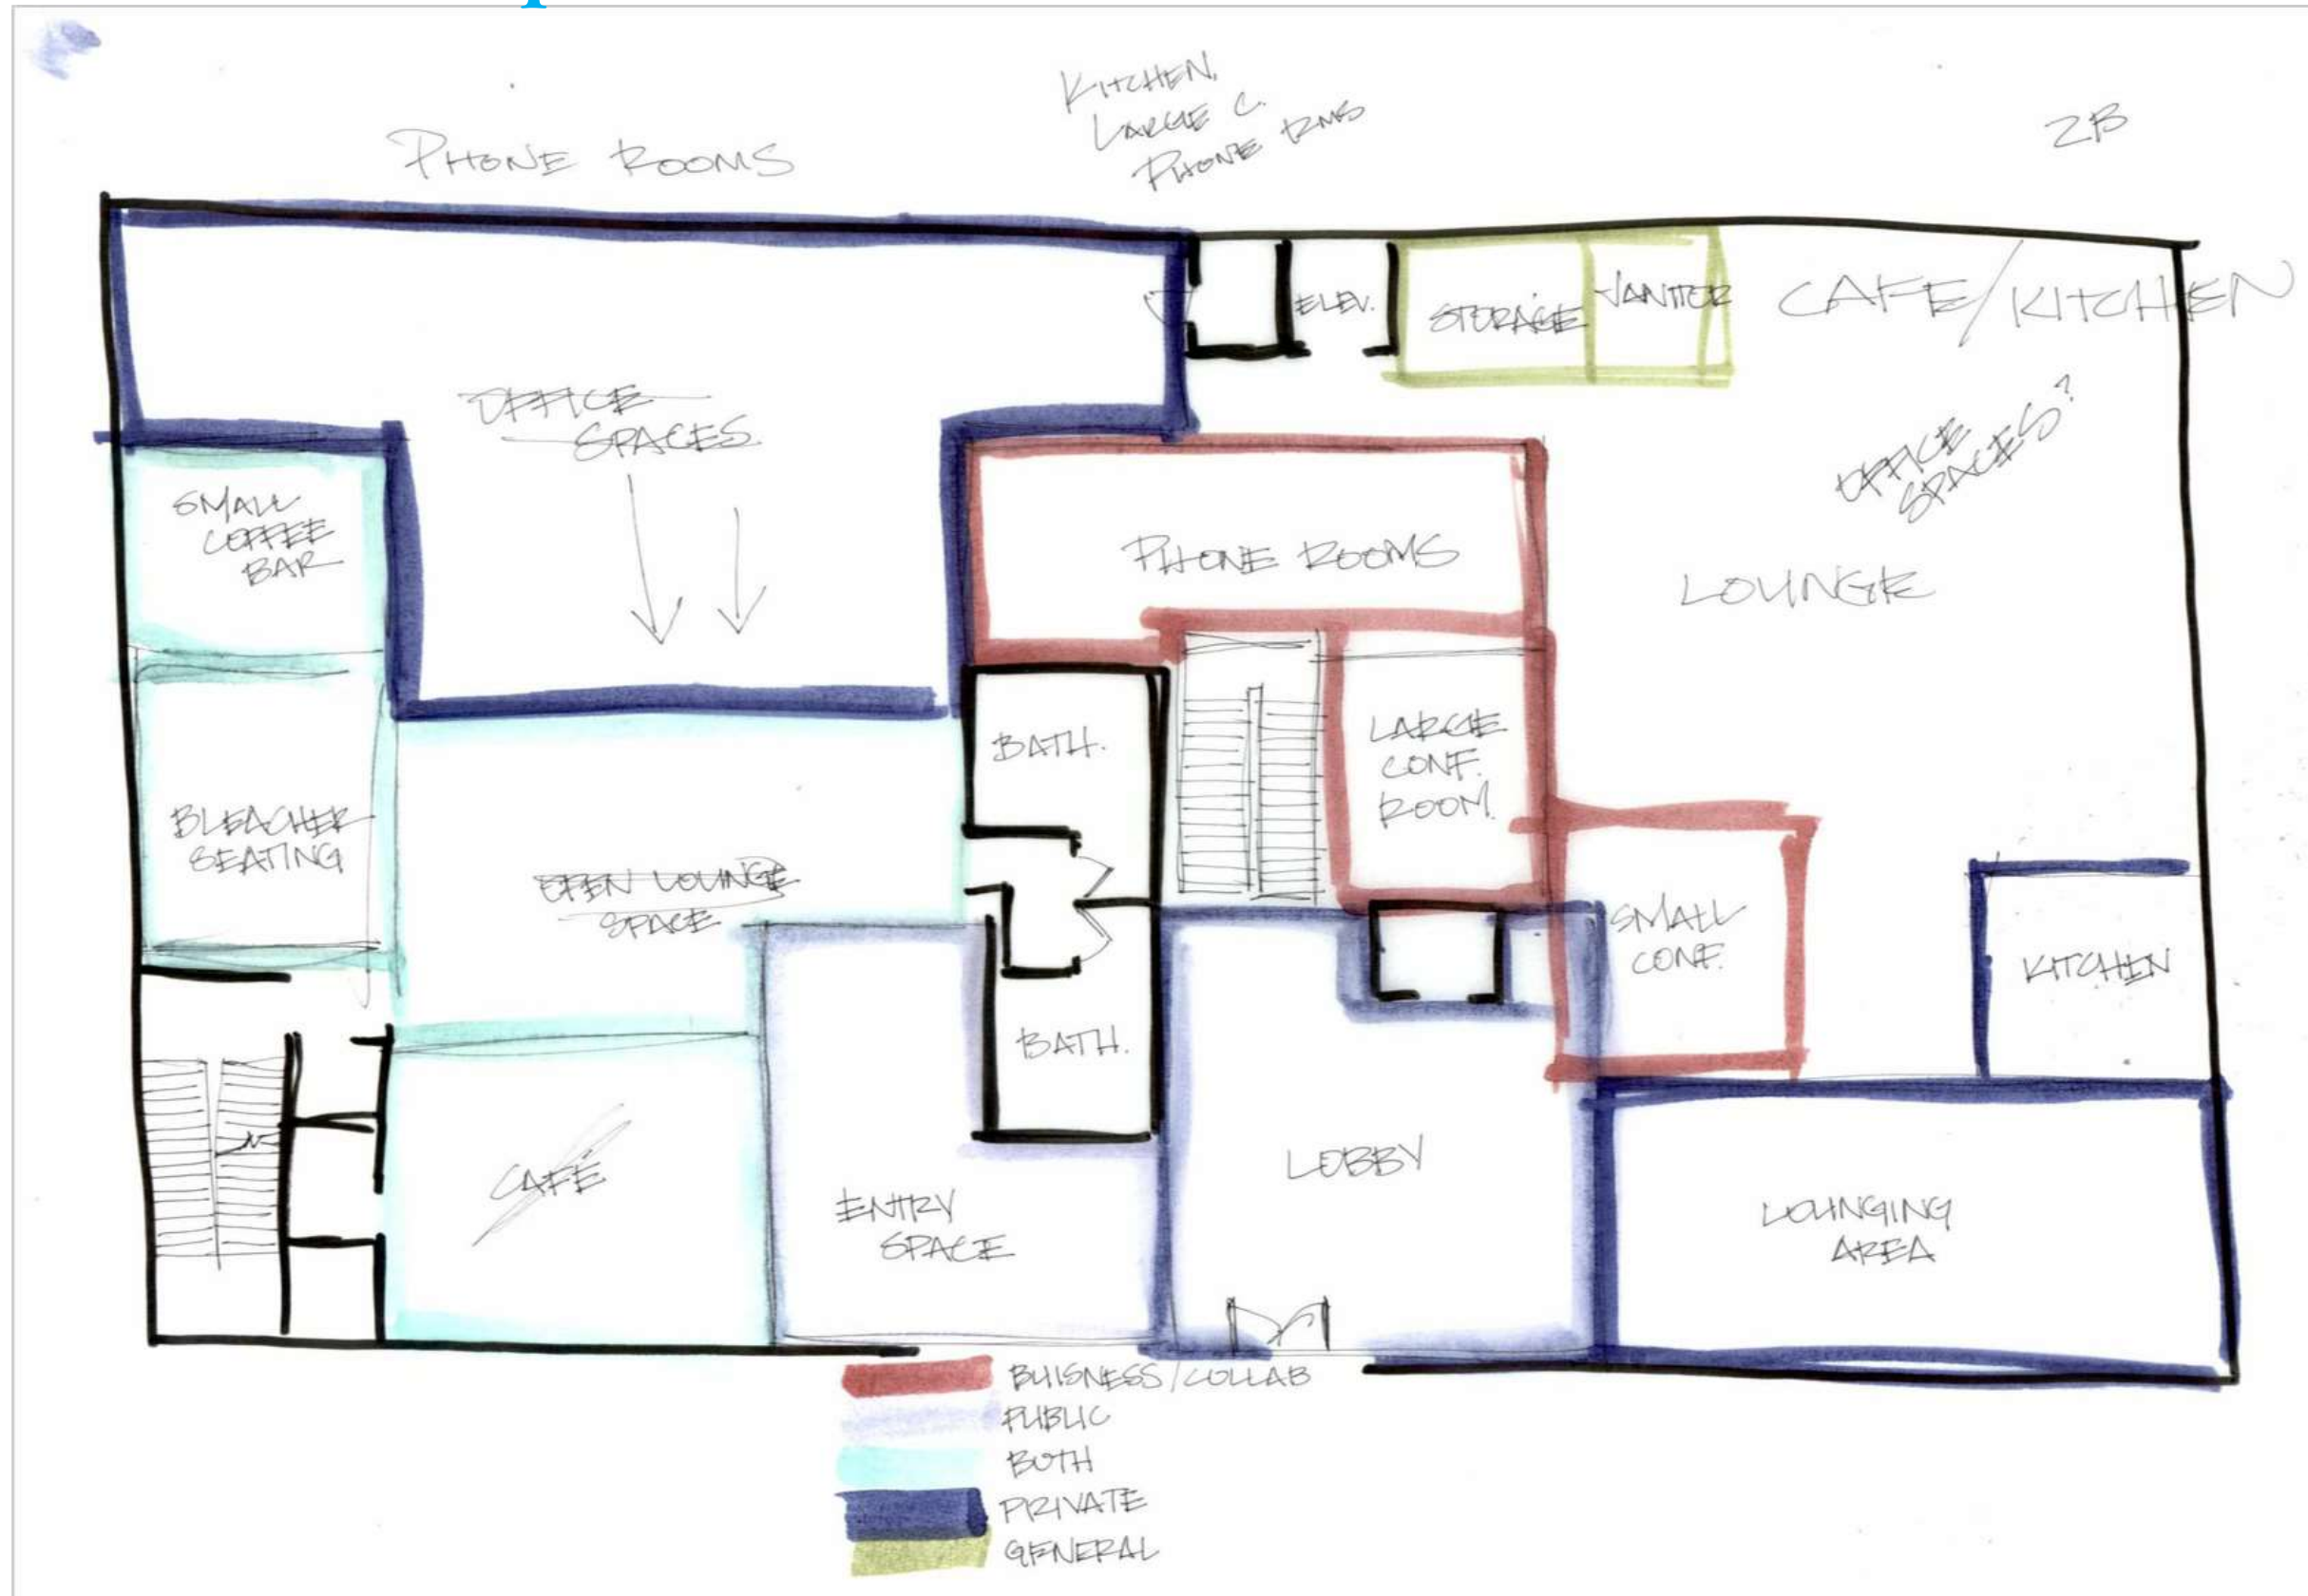 PHONE ROOMS
KITCHEN,
LARGE C.
PHONE RMS
2B
ELEV.
STORAGE
JANITOR
CAFE/KITCHEN
OFFICE
SPACES
OFFICE
SPACES?
SMALL
COFFEE
BAR
PHONE ROOMS
LOUNGE
BATH.
LARGE
CONF.
ROOM.
BLEACHER
SEATING
OPEN LOUNGE
SPACE
SMALL
CONF.
KITCHEN
BATH.
CAFÉ
ENTRY
SPACE
LOBBY
LOUNGING
AREA
BUISNESS/COLLAB
PUBLIC
BOTH
PRIVATE
GENERAL